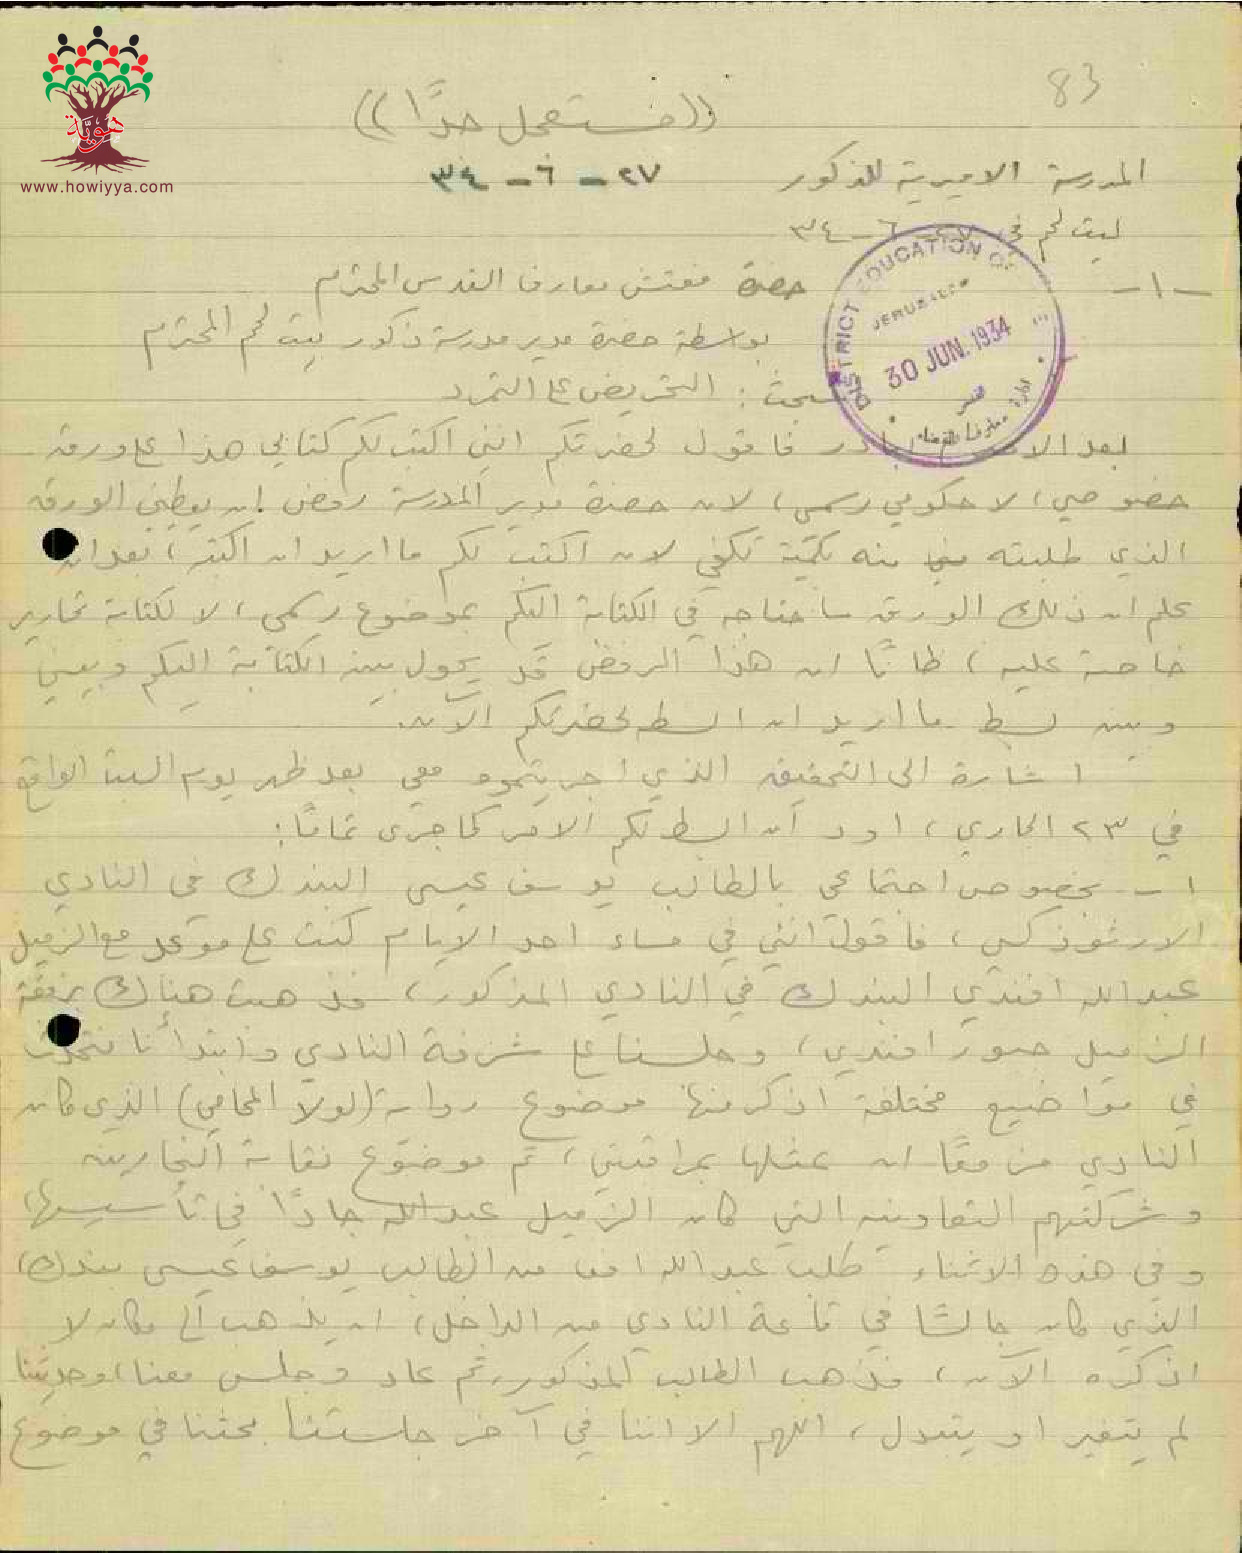 83
((مستعجل جدًّا))
المدرسة الاميرية للذكور ٢٧ - ٦ - ٣٤
بيت لحم في ٢٧ - ٦ - ٣٤
- ١ - حضرة مفتش معارف القدس المحترم
بواسطة حضرة مدير مدرسة ذكور بيت لحم المحترم
مبحث : التحريض على التمرد
بعد الاحترام ابادر فاقول لحضرتكم انني اكتب لكم كتابي هذا على ورق
خصوصي، لا حكومي رسمي، لان حضرة مدير المدرسة رفض ان يعطيني الورق
الذي طلبته منه بكمية تكفي لان اكتب لكم ما اريد ان اكتب، بعد ان
علم ان ذلك الورق ساحتاجه في الكتابة اليكم بموضوع رسمي، لا لكتابة تحارير
خاصة عليه، ظانًا ان هذا الرفض قد يحول بين الكتابة اليكم وبيني
وبين بسط ما اريد ان ابسطه لحضرتكم الآن.
اشارة الى التحقيق الذي اجريتموه معي بعد ظهر يوم السبت الواقع
في ٢٣ الجاري، اود أن ابسط لكم الامر كما جرى تمامًا:
١ - بخصوص اجتماعي بالطالب يوسف عيسى البندك في النادي
الارثوذكسي، فاقول انني في مساء احد الايام كنت على موعد مع الزميل
عبدالله افندي البندك في النادي المذكور، فذهبت هناك برفقة
الزميل جبور افندي، وجلسنا على شرفة النادي وابتدأنا نتحدث
في مواضيع مختلفة اذكر منها موضوع رواية (لولا المحامي) الذي كان
النادي مزمعًا ان يمثلها بمراقبتي، ثم موضوع نقابة النجارين
وشركتهم التعاونية التي كان الزميل عبدالله جادًا في تأسيسها،
وفي هذه الاثناء طلب عبدالله افندي من الطالب يوسف عيسى بندك،
الذي كان جالسًا في قاعة النادي من الداخل، ان يذهب الى مكان لا
اذكره الآن، فذهب الطالب المذكور ثم عاد وجلس معنا، وحديثنا
لم يتغير او يتبدل، اللهم الا اننا في آخر جلستنا بحثنا في موضوع
DISTRICT EDUCATION OF
JERUSALEM
30 JUN. 1934
هوية
www.howiyya.com